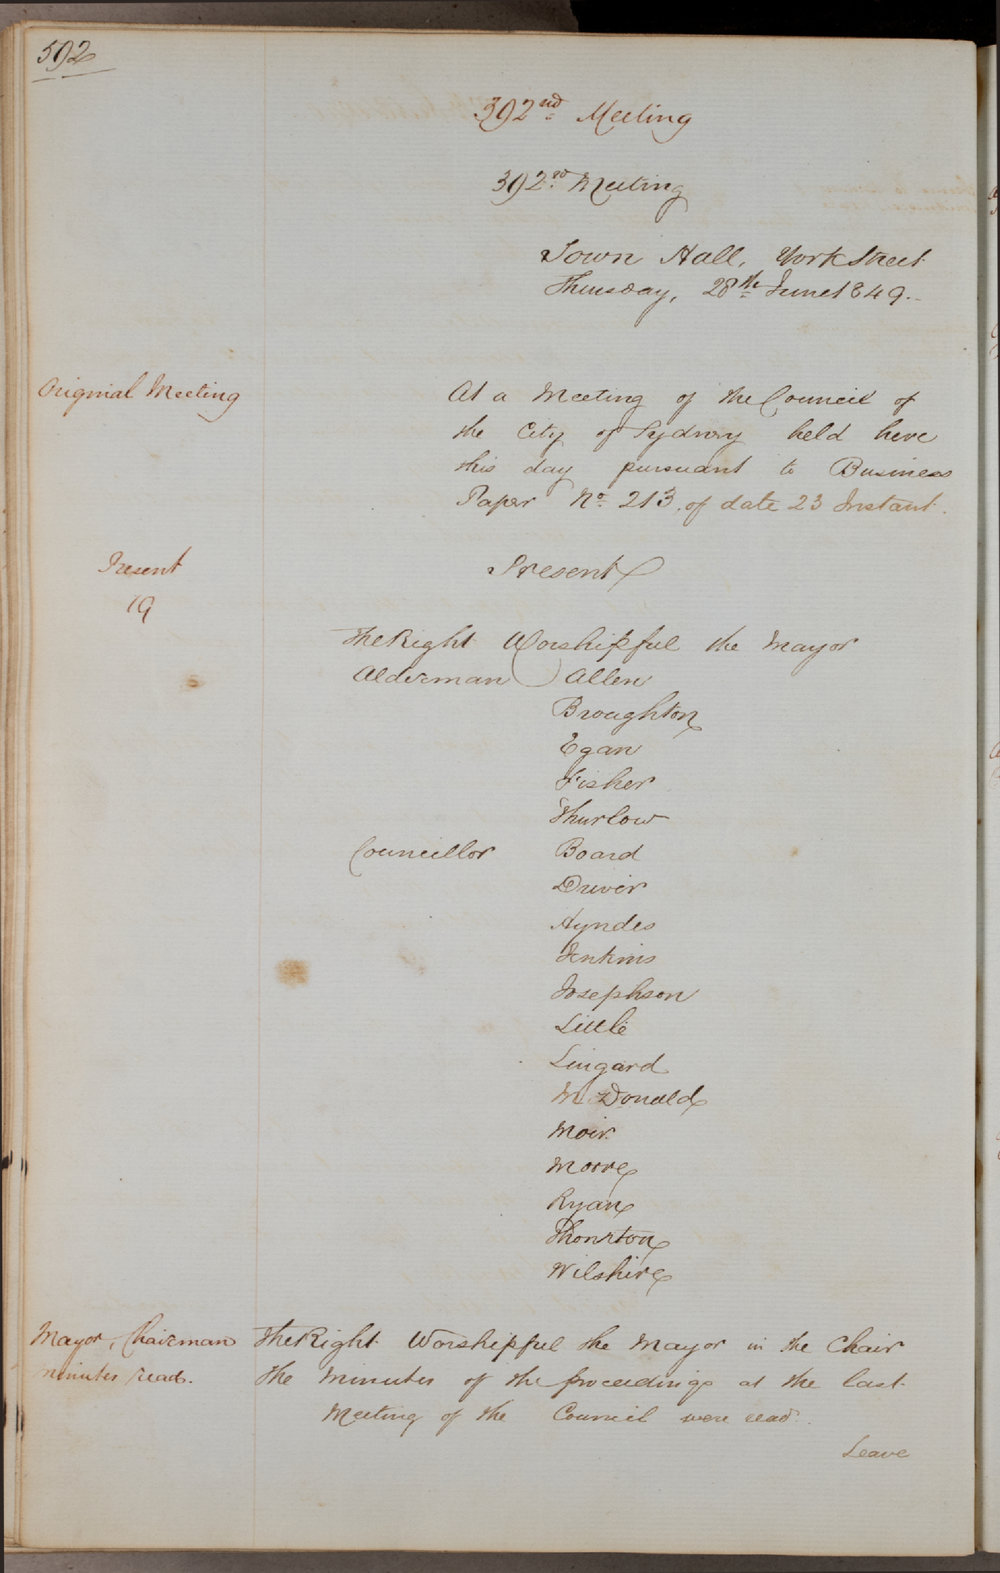 592
392nd Meeting
392nd Meeting
Town Hall, York Street
Thursday, 28th June 1849.
Original Meeting
At a Meeting of the Council of
the City of Sydney held here
this day pursuant to Business
Paper No. 213, of date 23 Instant.
Present
19
Present
The Right Worshipful the Mayor
Alderman Allen
Broughton
Egan
Fisher
Thurlow
Councillor Board
Driver
Hyndes
Jenkins
Josephson
Little
Lingard
McDonald
Moir
Moore
Ryan
Thornton
Wilshire
Mayor, Chairman
The Right Worshipful the Mayor in the Chair
Minutes read.
The Minutes of the proceedings at the last
Meeting of the Council were read.
Leave